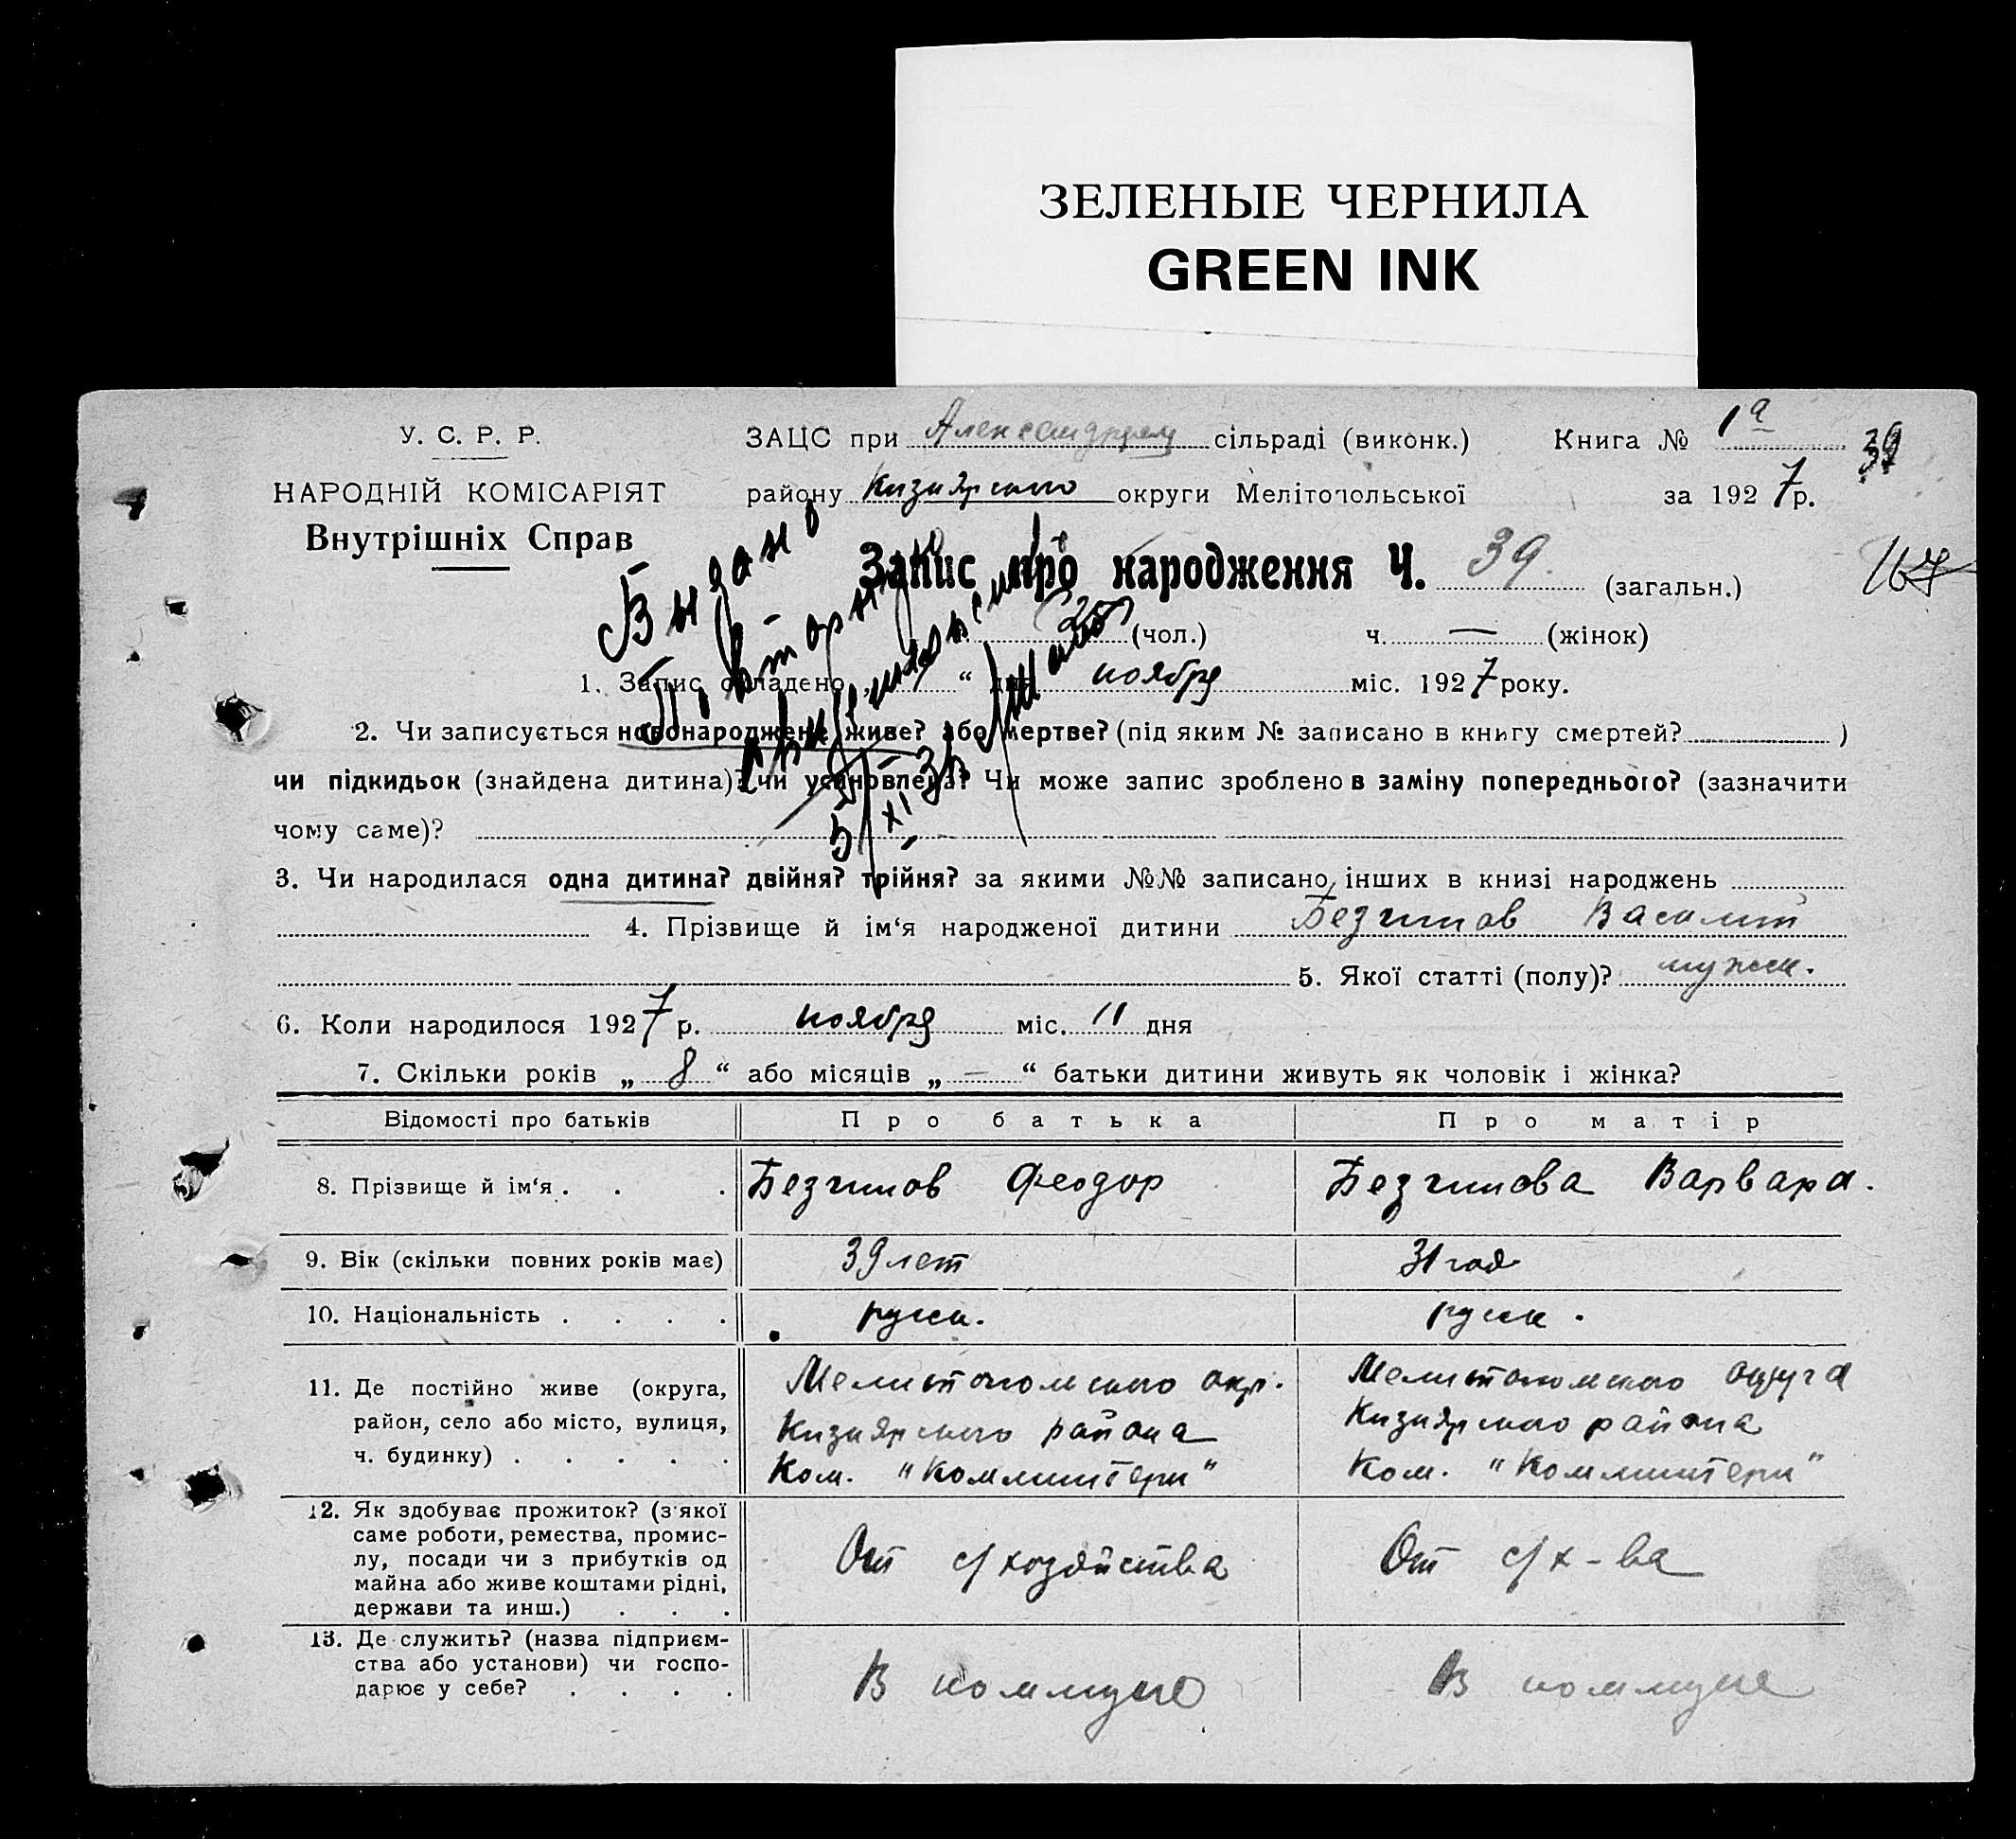 ЗЕЛЕНЫЕ ЧЕРНИЛА
GREEN INK
У. С. Р. Р.
НАРОДНІЙ КОМІСАРІЯТ
Внутрішніх Справ
ЗАЦС при сільраді (виконк.)
Книга № 1а
39
району Кизиярского округи Мелітопольської за 1927 р.
Запис про народження Ч. 39. (загальн.)
167
25 (чол.) ч. — (жінок)
Выдано
Повторно
5/XI 3
1. Запис складено „ “ дня ноября міс. 1927 року.
2. Чи записується новонароджене живе? або мертве? (під яким № записано в книгу смертей? )
чи підкидьок (знайдена дитина)? чи усиновлена? Чи може запис зроблено в заміну попереднього? (зазначити
чому саме)?
3. Чи народилася одна дитина? двійня? трійня? за якими №№ записано інших в книзі народжень
4. Прізвище й ім‘я народженої дитини Безчинов Василий
5. Якої статті (полу)? мужск.
6. Коли народилося 1927 р. ноября міс. 11 дня
7. Скільки років „ 8 “ або місяців „ — “ батьки дитини живуть як чоловік і жінка?
Відомості про батьків Про батька Про матір
8. Прізвище й ім‘я . . . Безчинов Феодор Безчинова Варвара.
9. Вік (скільки повних років має) 39 лет 31 год
10. Національність . . . . русск. русск.
11. Де постійно живе (округа, район, село або місто, вулиця, ч. будинку) . . . . .
Мелитопольского окр.
Кизиярского района
Ком. "Коминтерн"
Мелитопольского округа
Кизиярского района
Ком. "Коминтерн"
12. Як здобуває прожиток? (з'якої
саме роботи, ремества, промис-
лу, посади чи з прибутків од
майна або живе коштами рідні,
держави та инш.) . . .
От с/хозяйства
От с/х-ва
13. Де служить? (назва підприєм-
ства або установи) чи госпо-
дарює у себе? . . . .
В коммуне
В коммуне